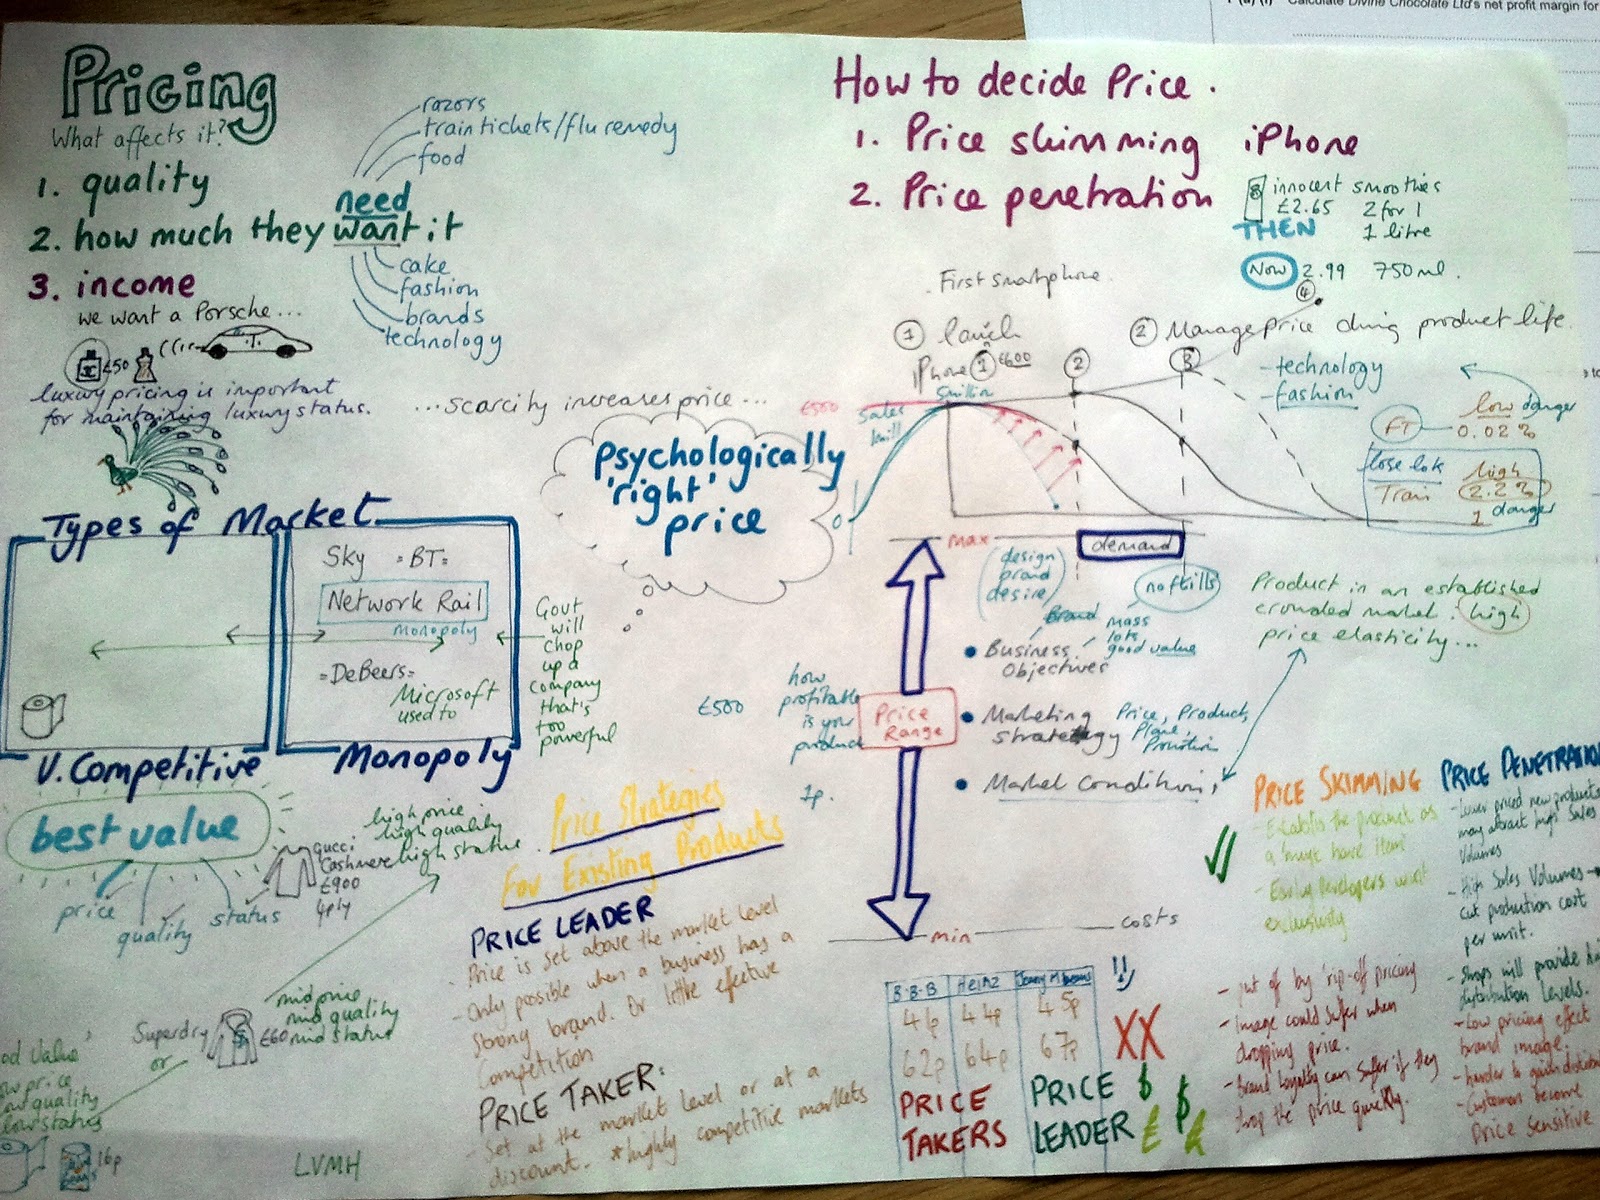 1 (a) (i) Calculate Divine Chocolate Ltd's net profit margin for
Pricing
What affects it?
1. quality
2. how much they want it
need
razors
train tickets/flu remedy
food
cake
fashion
brands
technology
3. income
we want a Porsche...
£50
luxury pricing is important
for maintaining luxury status.
...scarcity increases price...
psychologically
'right'
price
How to decide Price.
1. Price skimming iPhone
2. Price penetration
innocent smoothies
£2.65 2 for 1
THEN 1 litre
Now 2.99 750ml.
4
First smartphone.
1 launch
iPhone 1 £600
2 Manage price during product life.
2
3
£500
Sales
5million
0
- technology
- fashion
FT
low danger
0.02%
lose lots
Train
high
2.2%
danger
1
Types of Market
Sky =BT=
Network Rail
monopoly
=DeBeers=
Microsoft
used to
V. Competitive
Monopoly
Govt
will
chop
up a
company
that's
too
powerful
max
demand
(design
brand
desire)
no frills
Brand
mass
lots
good value
• Business
Objectives
£500
how
profitable
is your
product
1p.
Price
Range
• Marketing
strategy
Price, Product,
Place,
Promotion
• Market Conditions,
Product in an established
crowded market: high
price elasticity...
min
costs
best value
price
quality
status
Gucci
Cashmere
£900
4ply
high price
high quality
high status.
Superdry
or
£60
mid price
mid quality
mid status
value
price
quality
low status
16p
LVMH
Price Strategies
For Existing Products
PRICE LEADER
- Price is set above the market level
- Only possible when a business has a
strong brand. Or little effective
Competition
PRICE TAKER:
- Set at the market level or at a
discount. *highly competitive markets
B·B·B Heinz
44p 45p
62p 64p 67p
PRICE
TAKERS
PRICE
LEADER
!!
XX
£
PRICE SKIMMING
- Establish the product as
a 'must have item'
exclusivity
- put off by 'rip-off pricing
- Image could suffer when
dropping price.
- Brand loyalty can suffer if they
drop the price quickly.
PRICE PENETRATION
- Lower priced new products
may attract high sales
volumes
- High Sales Volumes →
cut production cost
per unit.
- Shops will provide
distribution levels.
- Low pricing effect
brand image.
- harder to gain
- Customers become
Price Sensitive